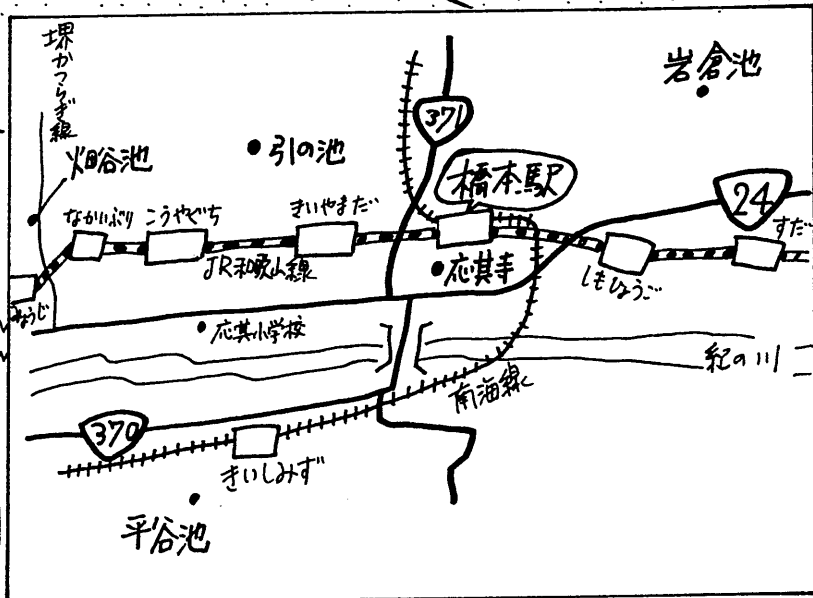 堺かつらぎ線
岩倉池
371
引の池
畑谷池
橋本駅
24
なかいぶり
こうやぐち
きいやまだ
すだ
JR和歌山線
応其寺
しもひょうご
みょうじ
応其小学校
紀の川
南海線
370
きいしみず
平谷池